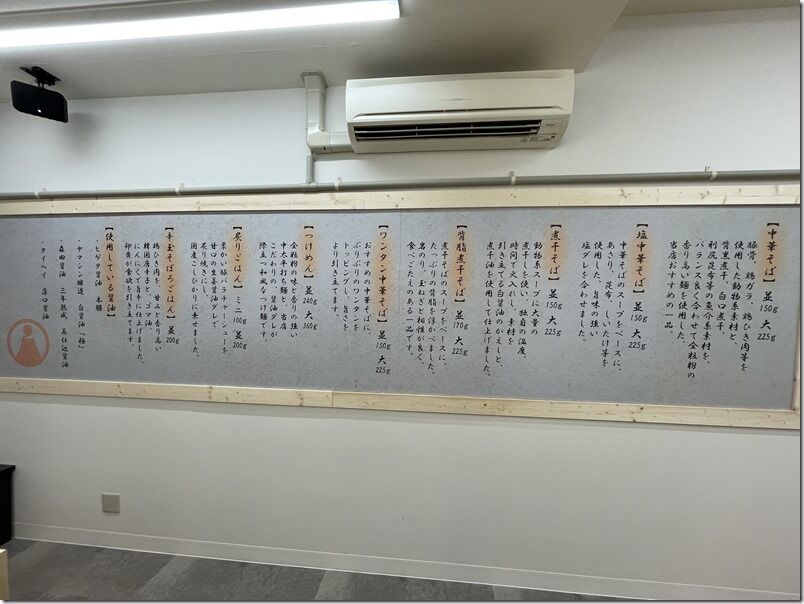 【中華そば】 並 150g 大 225g
豚骨、鶏ガラ、鶏ひき肉等を
使用した動物系素材と、
背黒煮干、白口煮干、
利尻昆布等の魚介系素材を、
バランス良く合わせて全粒粉の
香り高い麺を使用した、
当店おすすめの一品。
【塩中華そば】 並 150g 大 225g
中華そばのスープをベースに、
あさり、昆布、しいたけ等を
使用した、旨味の強い
塩ダレを合わせました。
【煮干そば】 並 150g 大 225g
動物系スープに大量の
煮干しを使い、独自の温度、
時間で火入れし、素材を
引き立てる白醤油のかえしと、
煮干油を使用して仕上げました。
【背脂煮干そば】 並 170g 大 225g
煮干そばのスープをベースに、
たっぷりの背脂を浮かべました。
岩のり、玉ねぎと相性が良く、
食べごたえのある一品です。
【ワンタン中華そば】 並 150g 大 225g
おすすめの中華そばに、
ぷりぷりのワンタンを
トッピングし、旨さを
より引き立てます。
【つけめん】 並 240g 大 360g
全粒粉の味と香りの強い
中太平打ち麺と、当店
こだわりの、醤油ダレが
際立つ和風なつけ麺です。
【炙りごはん】 ミニ 100g 並 200g
柔かい豚バラチャーシューを
甘口の生姜醤油ダレで
炙り焼きにし、
国産こしひかりに乗せました。
【辛玉そぼろごはん】 並 200g
鶏ひき肉を、甘みと香り高い
韓国産唐辛子と、ゴマ油、
にんにくで旨辛に仕上げました。
卵黄が食欲を引き立てます。
【使用している醤油】
・ヒゲタ醤油 本膳
・ヤマシン醸造 白醤油「極」
・森田醤油 三年熟成 再仕込醤油
・タイヘイ 薄口醤油